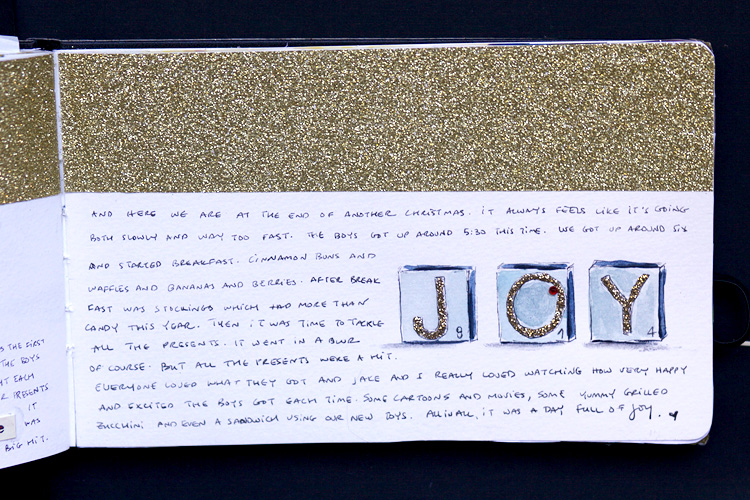 AND HERE WE ARE AT THE END OF ANOTHER CHRISTMAS. IT ALWAYS FEELS LIKE IT'S GOING
BOTH SLOWLY AND WAY TOO FAST. THE BOYS GOT UP AROUND 5:30 THIS TIME. WE GOT UP AROUND SIX
AND STARTED BREAKFAST. CINNAMON BUNS AND
WAFFLES AND BANANAS AND BERRIES. AFTER BREAK
FAST WAS STOCKINGS WHICH HAD MORE THAN
CANDY THIS YEAR. THEN IT WAS TIME TO TACKLE
ALL THE PRESENTS. IT WENT IN A BLUR
OF COURSE. BUT ALL THE PRESENTS WERE A HIT.
EVERYONE LOVED WHAT THEY GOT AND JAKE AND I REALLY LOVED WATCHING HOW VERY HAPPY
AND EXCITED THE BOYS GOT EACH TIME. SOME CARTOONS AND MOVIES, SOME YUMMY GRILLED
ZUCCHINI AND EVEN A SANDWICH USING OUR NEW TOYS. ALL IN ALL, IT WAS A DAY FULL OF JOY.
J 8
O 1
Y 4
S THE FIRST
THE BOYS
EACH
PRESENTS
IT
WAS
BIG HIT.